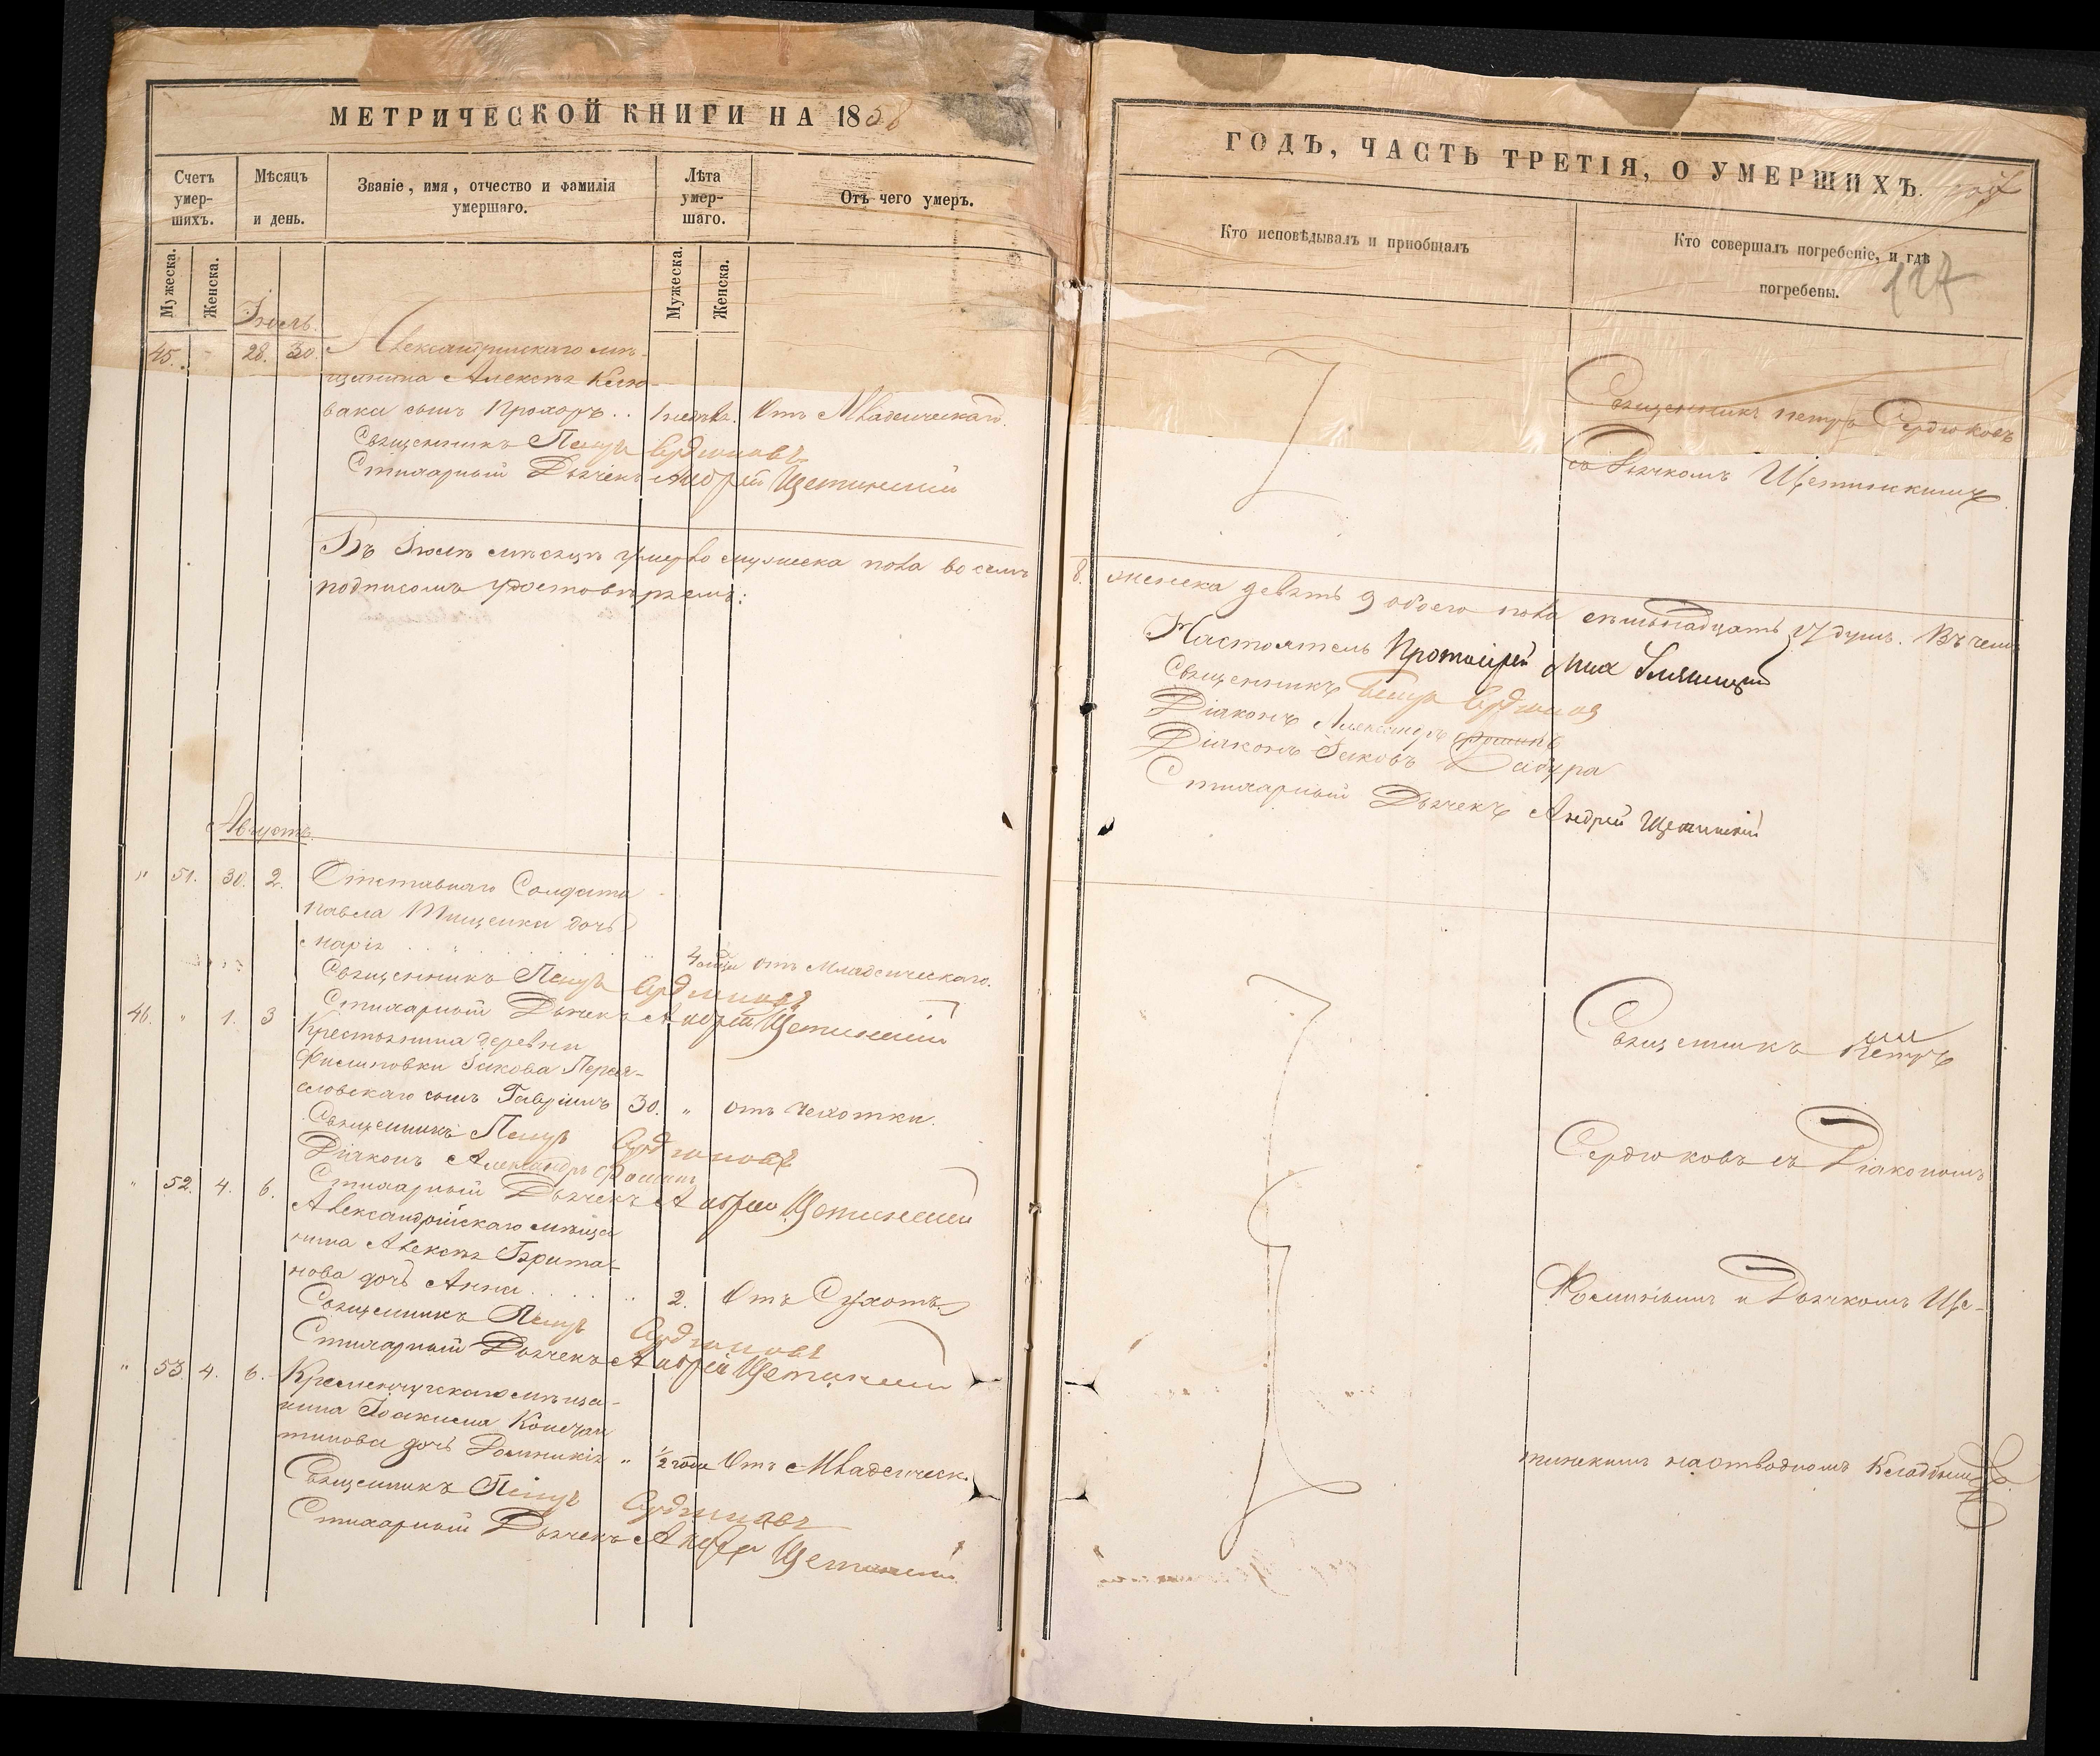 МЕТРИЧЕСКОЙ КНИГИ НА 1858
Счетъ умер-шихъ.
Мѣсяцъ и день.
Званіе, имя, отчество и фамилія умершаго.
Лѣта умер-шаго.
Отъ чего умеръ.
Мужеска.
Женска.
Мужеска.
Женска.
Іюль.
45. - 28. 30. Александрійскаго мѣ-
щанина Алексѣя
вака сынъ Прохоръ.. Отъ Младенческаго.
Священникъ Петръ Сердюковъ
Стихарный Дьячекъ Андрей Щетинскій
Въ Іюлѣ мѣсяцѣ умерло мужеска пола восемь
подписомъ удостовѣряемъ:
Августъ.
" 51. 30. 2. Отставнаго Солдата
Павла Тищенка дочь
Марія 4 отъ Младенческаго.
Священникъ Петръ Сердюковъ
Стихарный Дьячекъ Андрей Щетинскій
46. " 1. 3 Крестьянина деревни
Филиповки Іакова Перея-
словскаго сынъ Гавріилъ 30. " отъ чахотки.
Священникъ Петръ Сердюковъ
Діаконъ Александръ
Стихарный Дьячекъ Андрей Щетинскій
" 52. 4. 6. Александрійскаго мѣща
нина Алексѣя Брита-
нова дочь Анна 2. Отъ Сухотъ
Священникъ Петръ Сердюковъ
Стихарный Дьячекъ Андрей Щетинскій
" 53. 4. 6. Кременчугскаго мѣща-
нина Іоакима Констан
тинова дочь Домникія " ½ года Отъ Младенческ.
Священникъ Петръ Сердюковъ
Стихарный Дьячекъ Андрей Щетинскій
ГОДЪ, ЧАСТЬ ТРЕТІЯ, О УМЕРШИХЪ.
Кто исповѣдывалъ и пріобщалъ
Кто совершалъ погребеніе, и гдѣ погребены.
127
Священникъ Петръ Сердюковъ
съ Дьячкомъ Щетинскимъ
8. женска девять 9 обоего пола семьнадцать 17 душъ. Въ чемъ
Настоятель Протоіерей
Священникъ Петръ Сердюковъ
Діаконъ Александръ
Діаконъ Іаковъ
Стихарный Дьячекъ Андрей Щетинскій
Священникъ Петръ
Сердюковъ съ Діакономъ
и Дьячкомъ Ще-
тинскимъ на отводномъ Кладбищѣ.